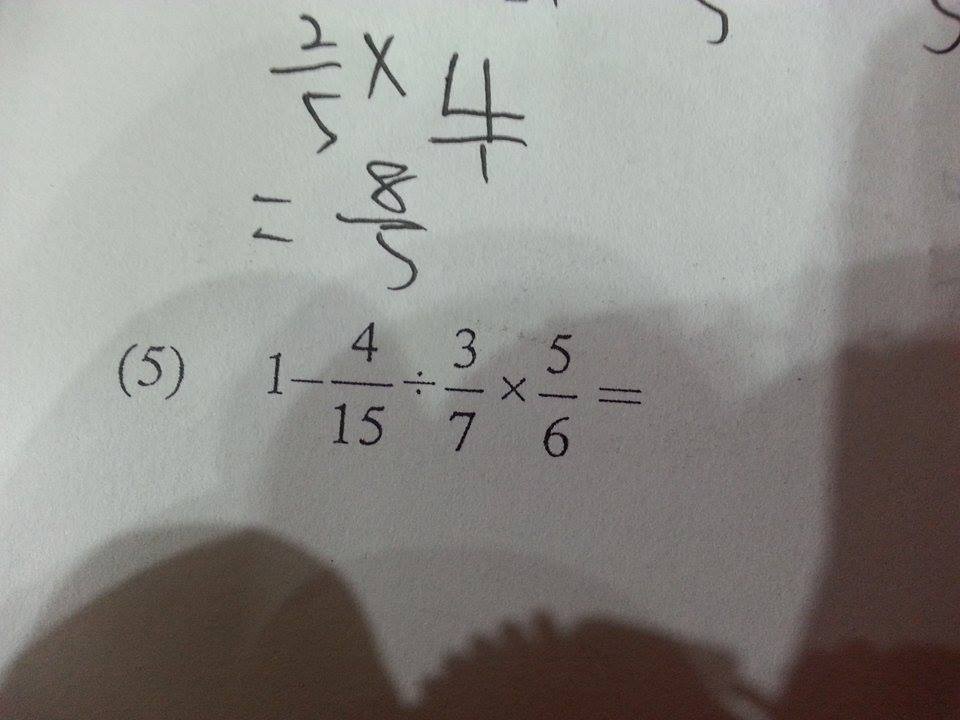 2/5 × 4/1
= 8/5
(5) 1 − 4/15 ÷ 3/7 × 5/6 =